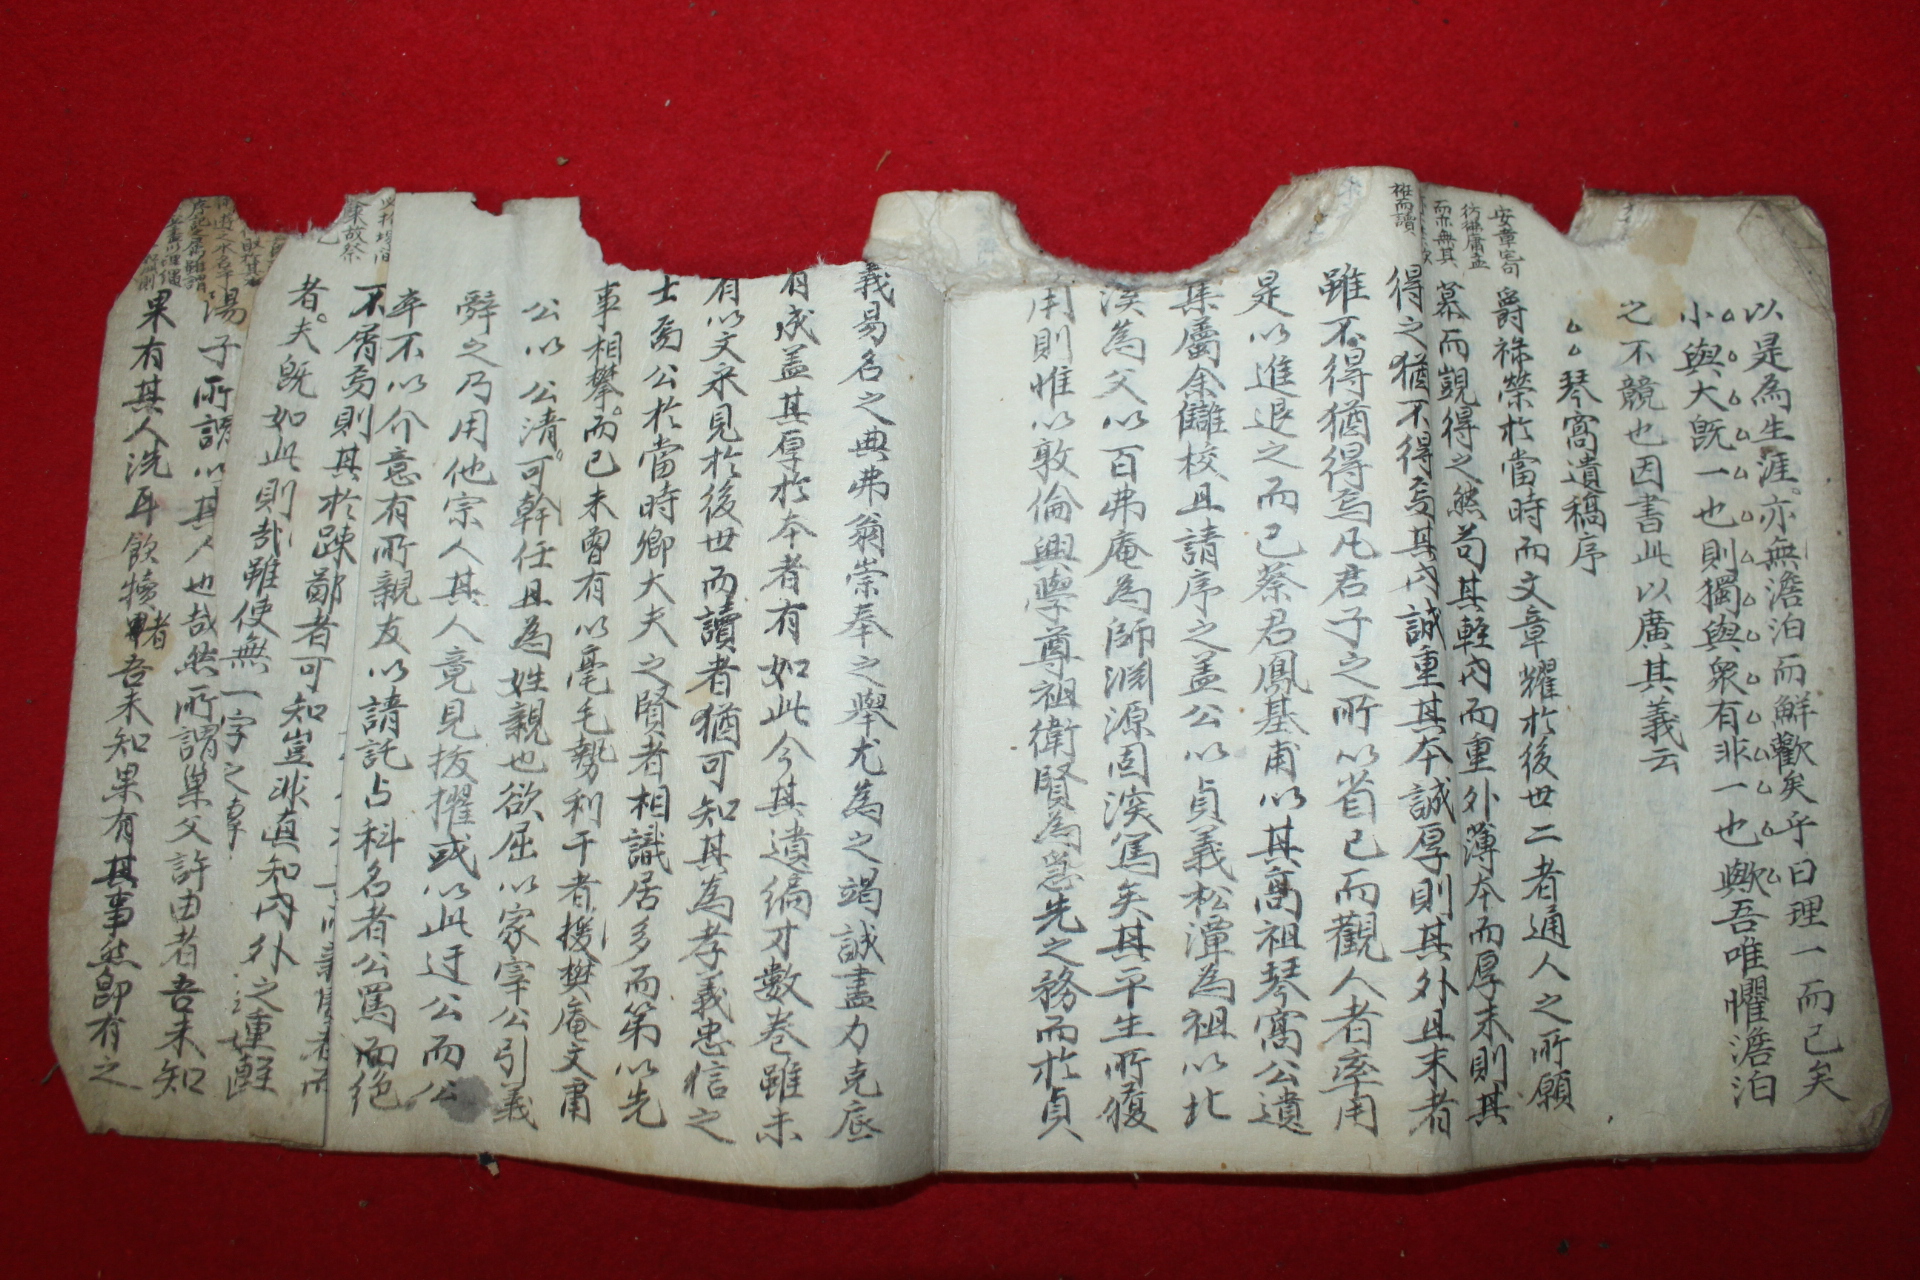 以是為生涯亦無澹泊而鮮歡矣乎曰理一而已矣
小與大旣一也則獨與衆有非一也歟吾唯懼澹泊
之不競也因書此以廣其義云
琴窩遺稿序
爵祿榮於當時而文章耀於後世二者通人之所願
慕而覬得之然苟其輕內而重外薄本而厚末則其
得之猶不得焉其內誠重其本誠厚則其外且末者
雖不得猶得焉凡君子之所以省己而觀人者率用
是以進退之而已蔡君鳳基甫以其高祖琴窩公遺
集屬余讎校且請序之盖公以貞義松潭為祖以北
溪為父以百弗庵為師淵源固深篤矣其平生所
用則惟以敦倫興學尊祖衛賢為急先之務而於貞
義易名之典弗翁崇奉之舉尤為之竭誠盡力克底
有成盖其厚於本者有如此今其遺編才數卷雖未
有以文采見於後世而讀者猶可知其為孝義忠信之
士焉公於當時鄉大夫之賢者相識居多而第以先
事相攀而已未曾有以毫毛勢利干者樊庵文肅
公以公清可幹任且為姓親也欲屈以家宰公引義
辭之乃用他宗人其人竟見拔擢或以此迂公而公
卒不以介意有所親友以請託占科名者公罵而絕
不屑焉則其於踈鄙者可知豈非真知內外之重輕
者夫旣如此則哉雖使無一字之
陽子所謂以其人也哉然所謂巢父許由者吾未知
果有其人洗耳飮犢者吾未知果有其事然卽有之
安章宅句
彷彿庸孟
而亦無其
班而讀